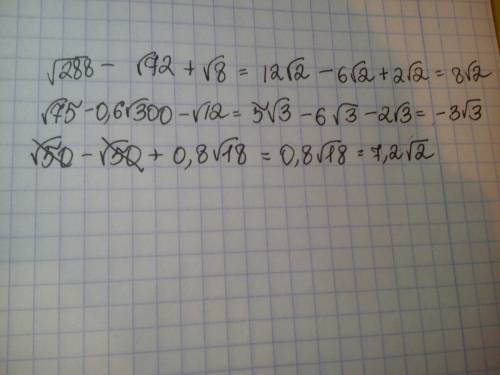 √288 - √72 + √8 = 12√2 - 6√2 + 2√2 = 8√2
√75 - 0,6√300 - √12 = 5√3 - 6√3 - 2√3 = -3√3
√50 - √50 + 0,8√18 = 0,8√18 = 7,2√2